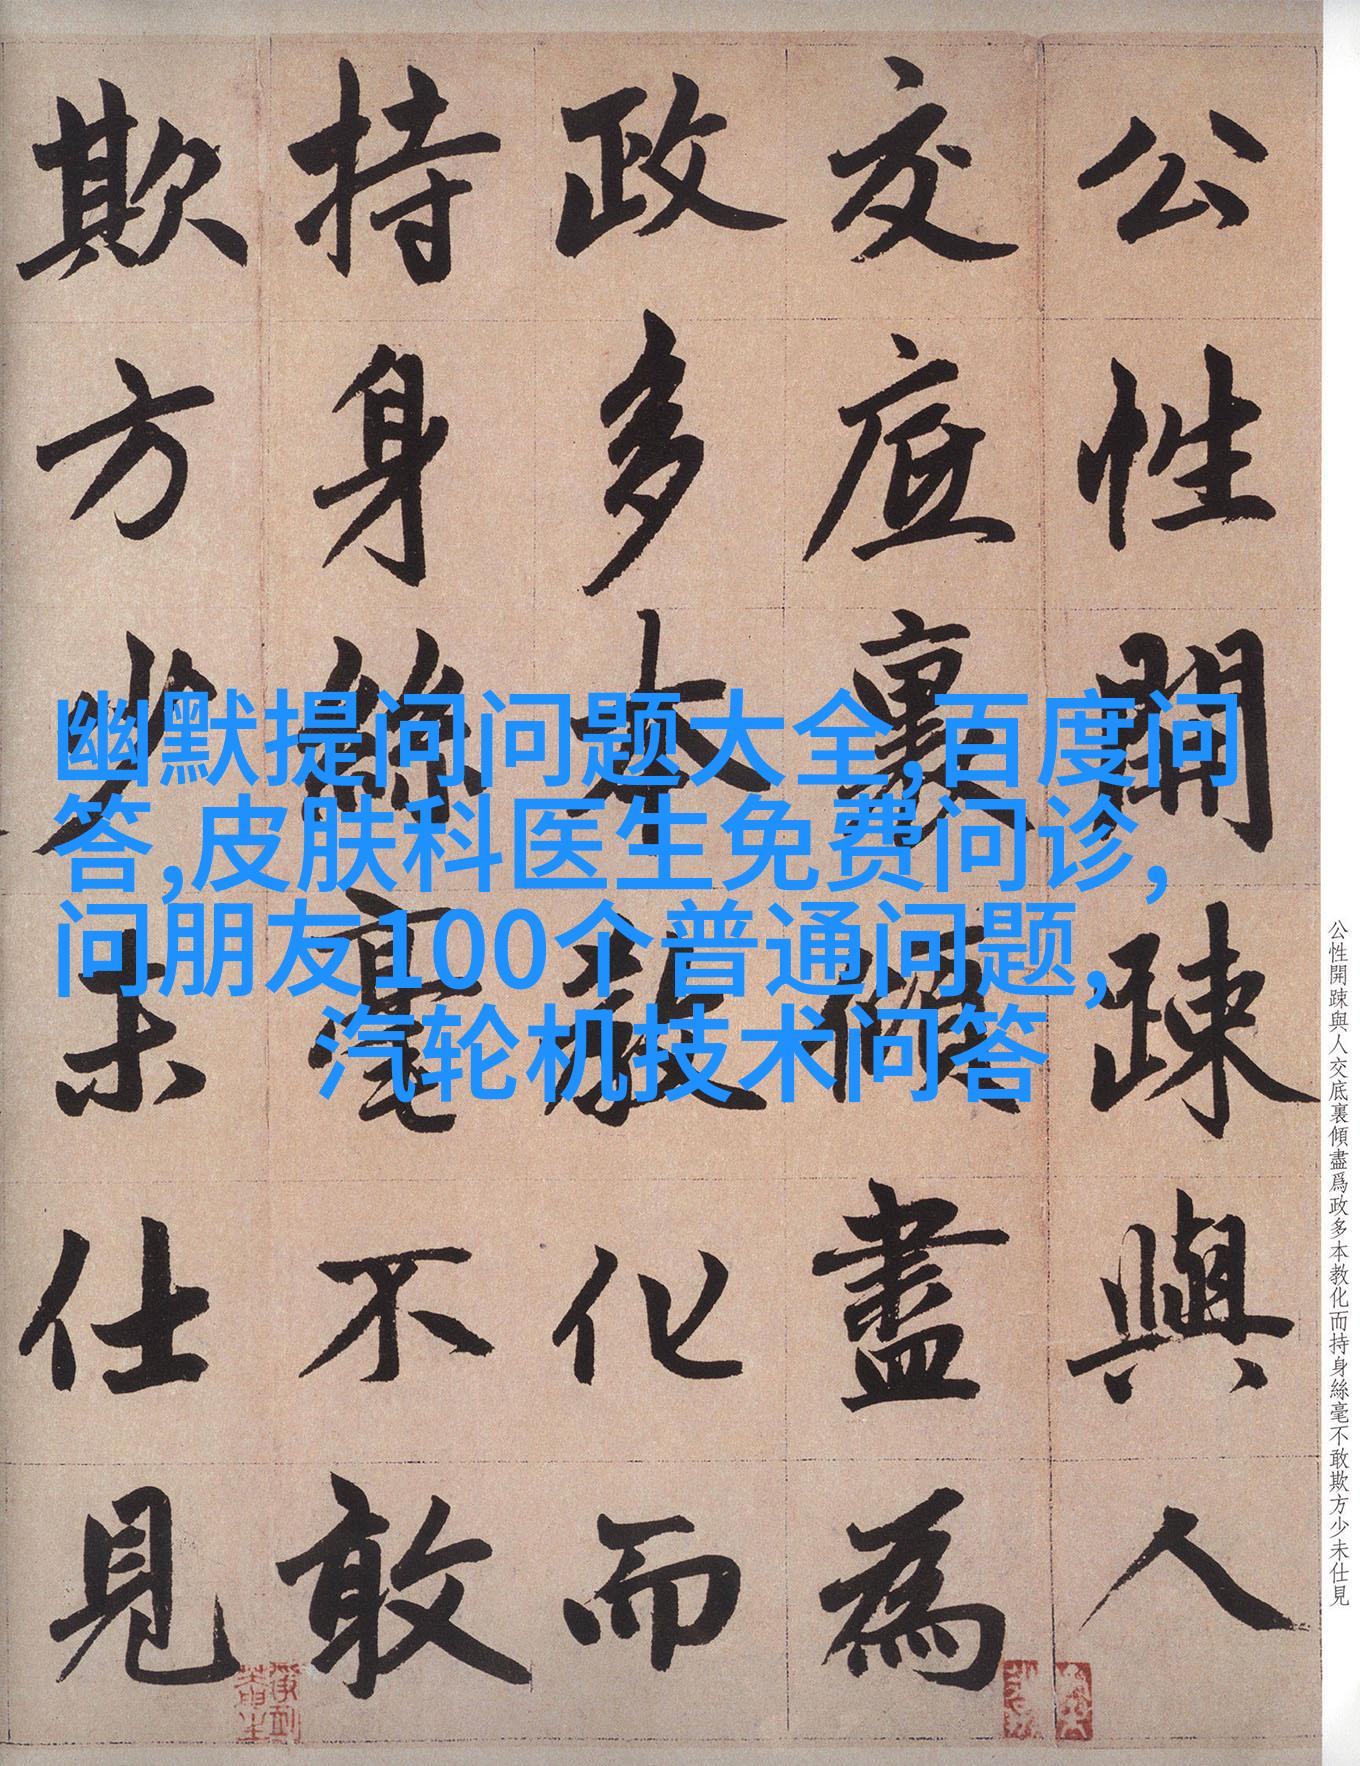 公性開踈與人
交底裏傾盡為
政多本教化而
持身絲毫不敢
欺方少未仕見
幽默提问问题大全,百度问
答,皮肤科医生免费问诊,
问朋友100个普通问题,
汽轮机技术问答
公性開踈與人交底裏傾盡爲政多本教化而持身絲毫不敢欺方少未仕見